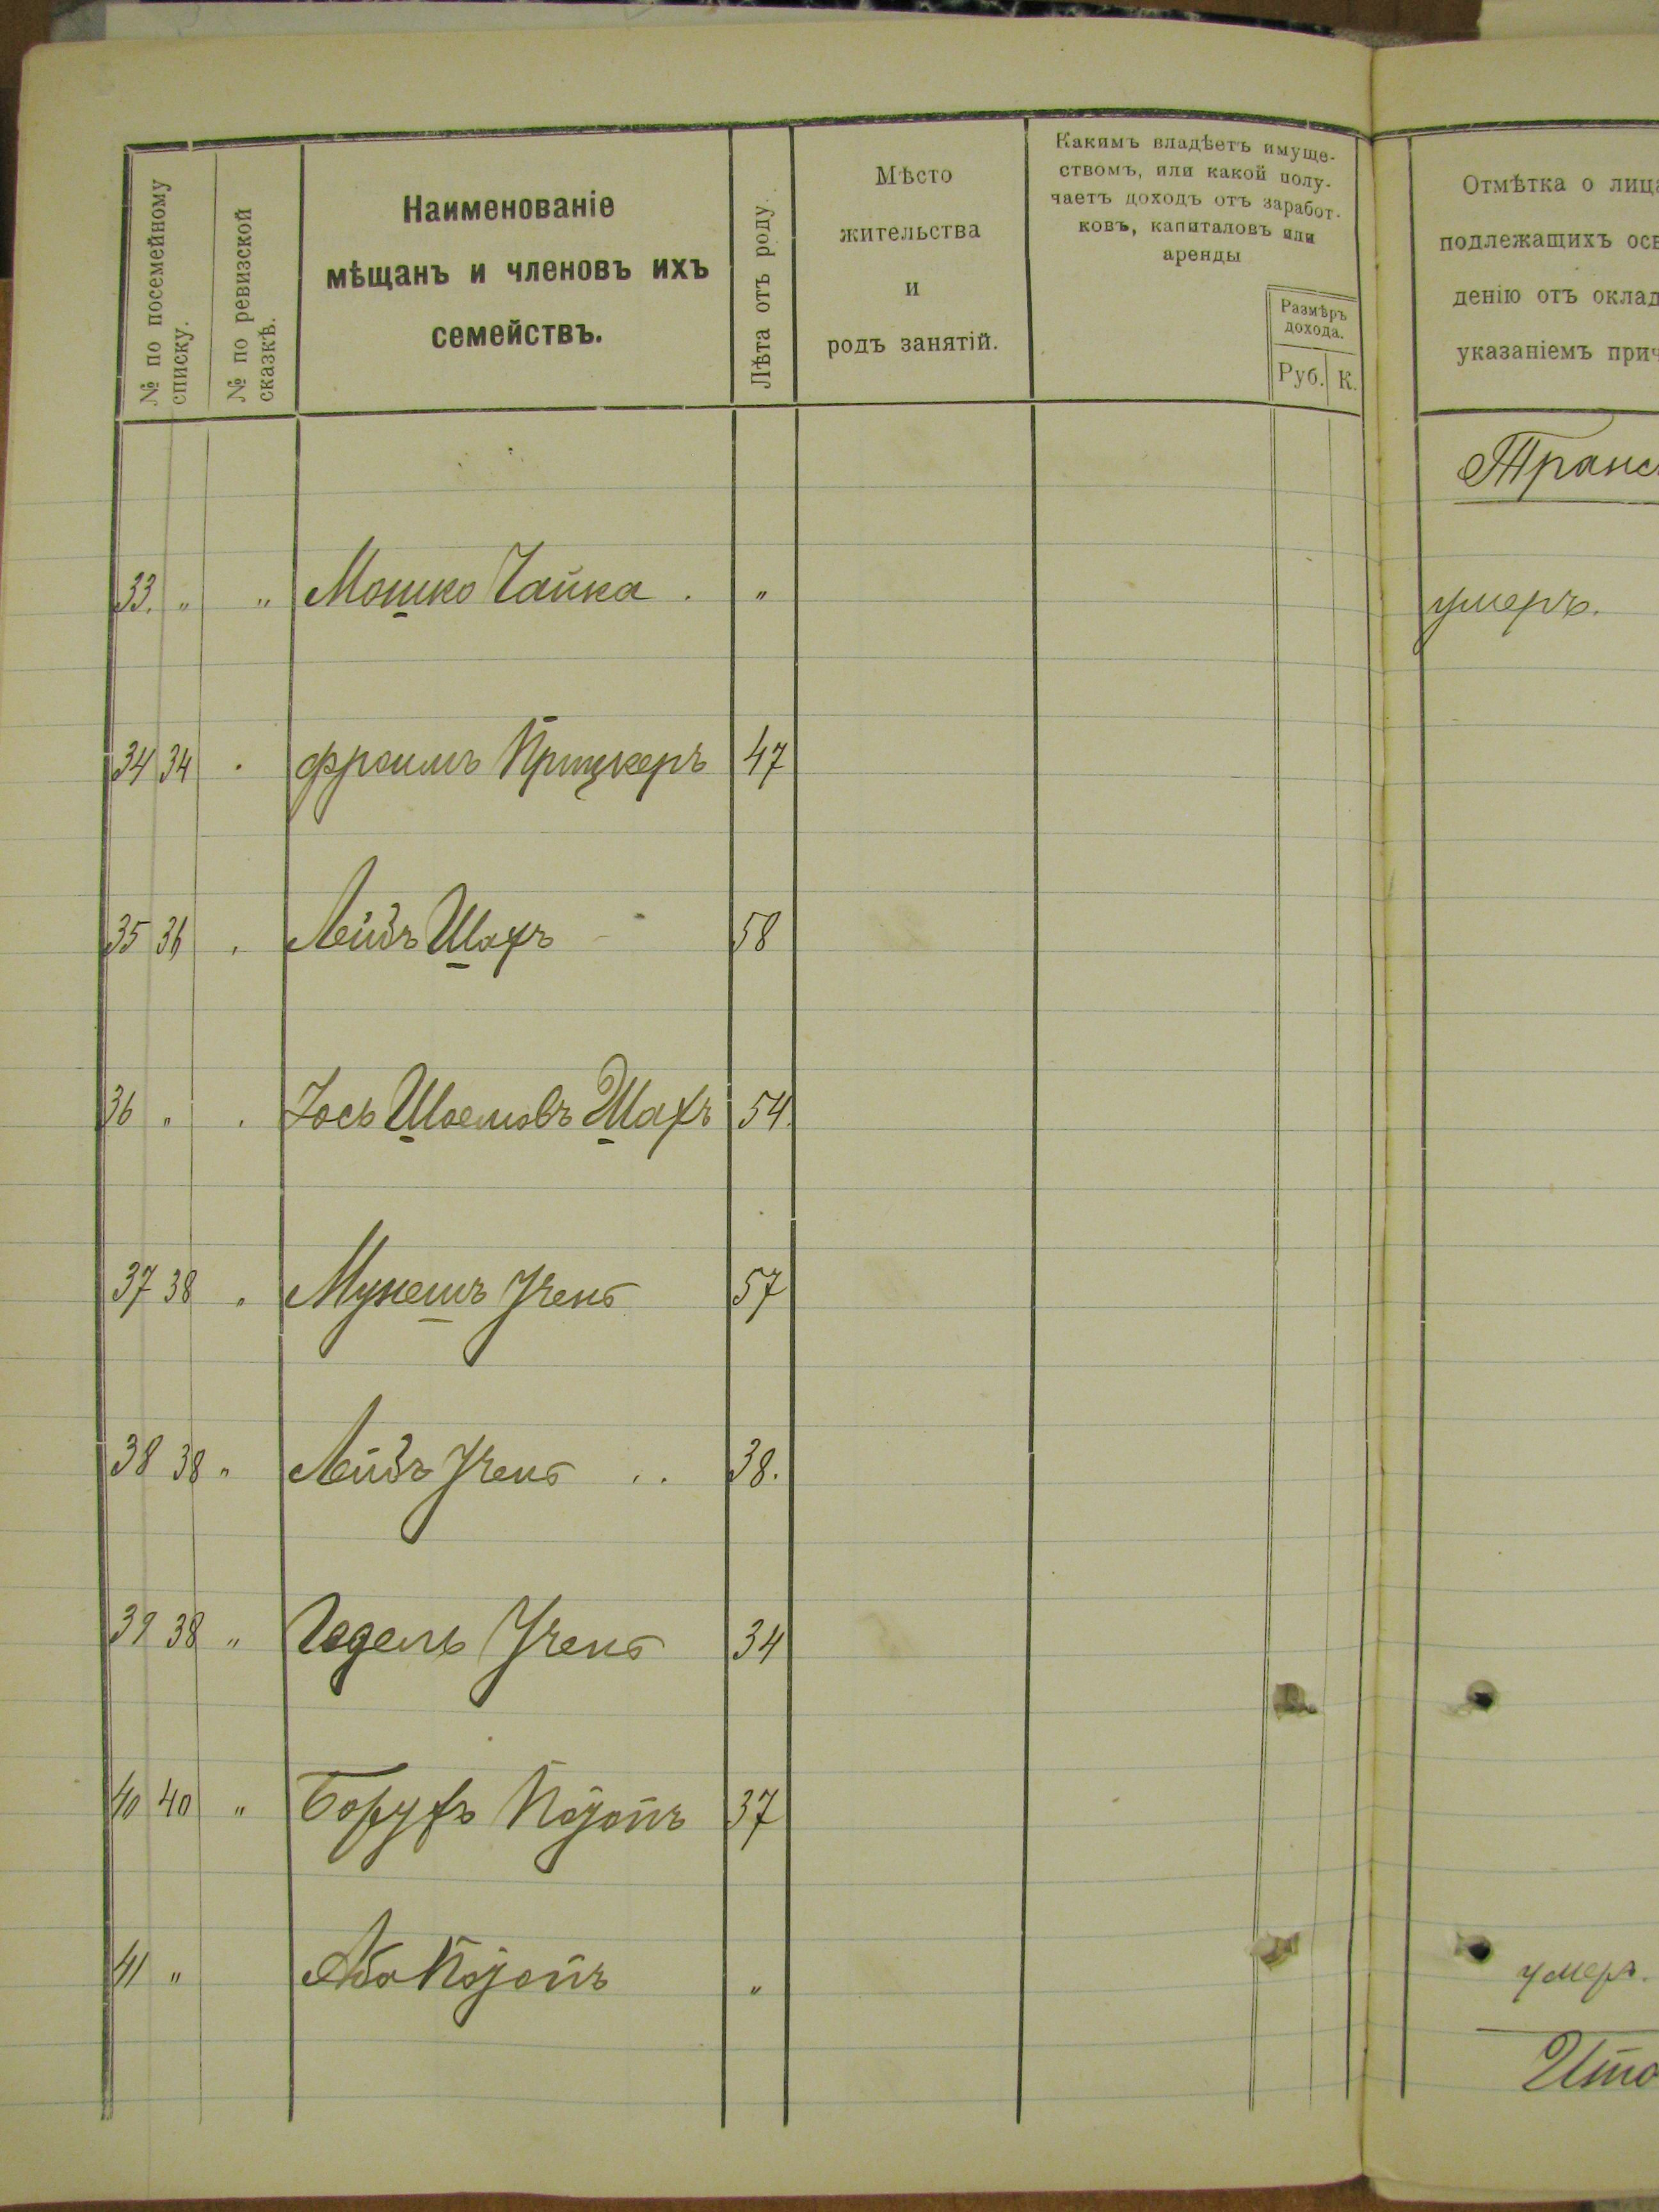 № по посемейному
списку.
№ по ревизской
сказкѣ.
Наименованіе
мѣщанъ и членовъ ихъ
семействъ.
Лѣта отъ роду.
Мѣсто
жительства
и
родъ занятій.
Какимъ владѣетъ имуще-
ствомъ, или какой полу-
чаетъ доходъ отъ заработ-
ковъ, капиталовъ или
аренды
Размѣръ
дохода.
Руб. К.
Отмѣтка о лица
подлежащихъ осв
денію отъ оклад
указаніемъ прич
Транс
33. „ „ Мошко Чайка . „ умеръ.
34 34 . Фроимъ Прицкеръ 47
35 36 . Лейзъ Шахъ 58
36 „ . Іось Шаемовъ Шахъ 54.
37 38 „ Мунешъ 57
38 38 „ Лейзъ 38.
39 38 „ Гедель 34
40 40 „ Борухъ 37
41 „ Аба „ умеръ.
Ито